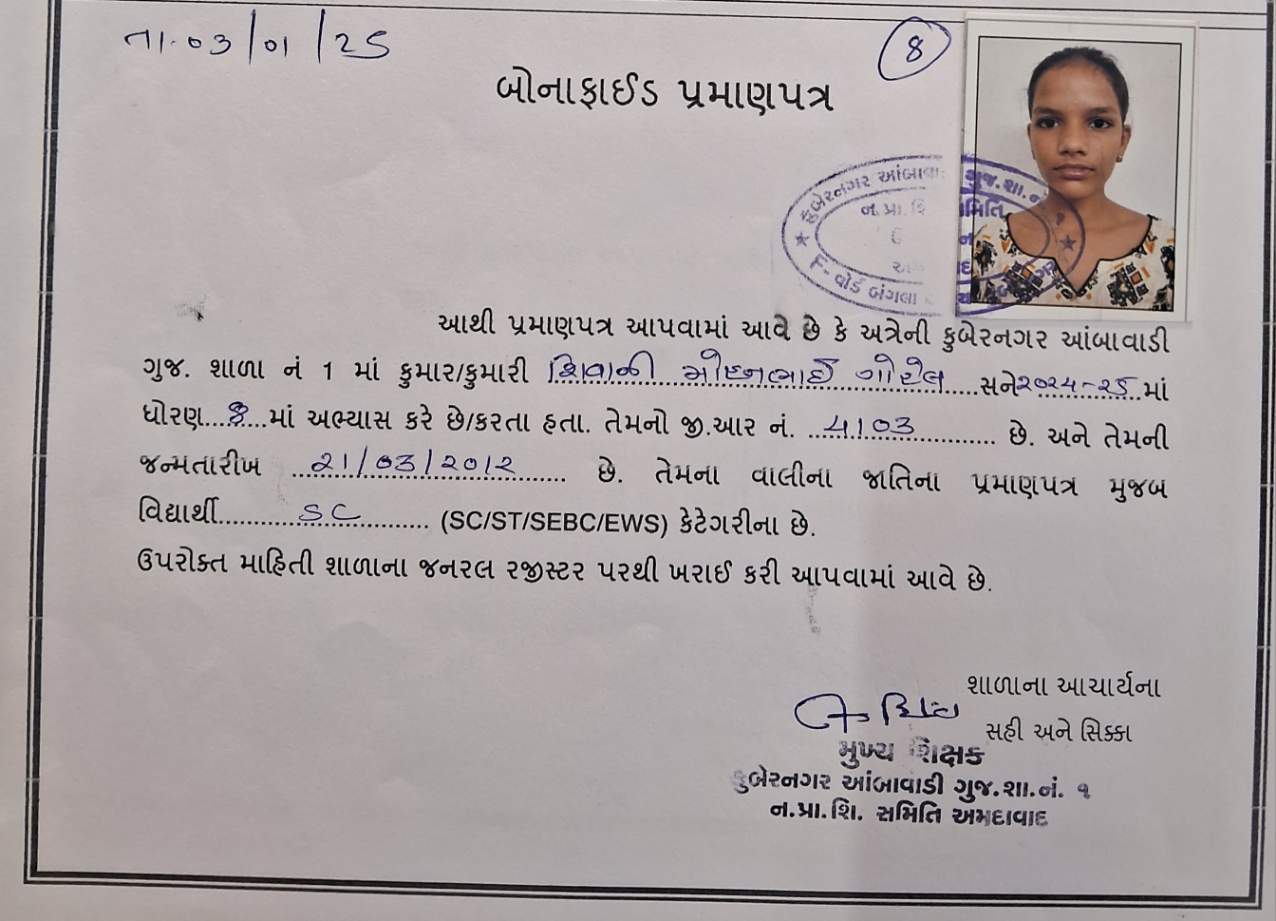 તા.૦૩/૦૧/૨૫
8
બોનાફાઈડ પ્રમાણપત્ર
કુબેરનગર આંબાવા ગુજ.શા.નં
ન.પ્રા.શિ મિતિ
F- વોર્ડ બંગલા
આથી પ્રમાણપત્ર આપવામાં આવે છે કે અત્રેની કુબેરનગર આંબાવાડી
ગુજ. શાળા નં 1 માં કુમાર/કુમારી શિવાની મોહનભાઈ ગોહેલ સને ૨૦૨૪-૨૫ માં
ધોરણ...8...માં અભ્યાસ કરે છે/કરતા હતા. તેમનો જી.આર નં. 4103 છે. અને તેમની
જન્મતારીખ ૨1/૦3/૨૦1૨ છે. તેમના વાલીના જાતિના પ્રમાણપત્ર મુજબ
વિદ્યાર્થી SC (SC/ST/SEBC/EWS) કેટેગરીના છે.
ઉપરોક્ત માહિતી શાળાના જનરલ રજીસ્ટર પરથી ખરાઈ કરી આપવામાં આવે છે.
શાળાના આચાર્યના
સહી અને સિક્કા
મુખ્ય શિક્ષક
કુબેરનગર આંબાવાડી ગુજ.શા.નં. ૧
ન.પ્રા.શિ. સમિતિ અમદાવાદ